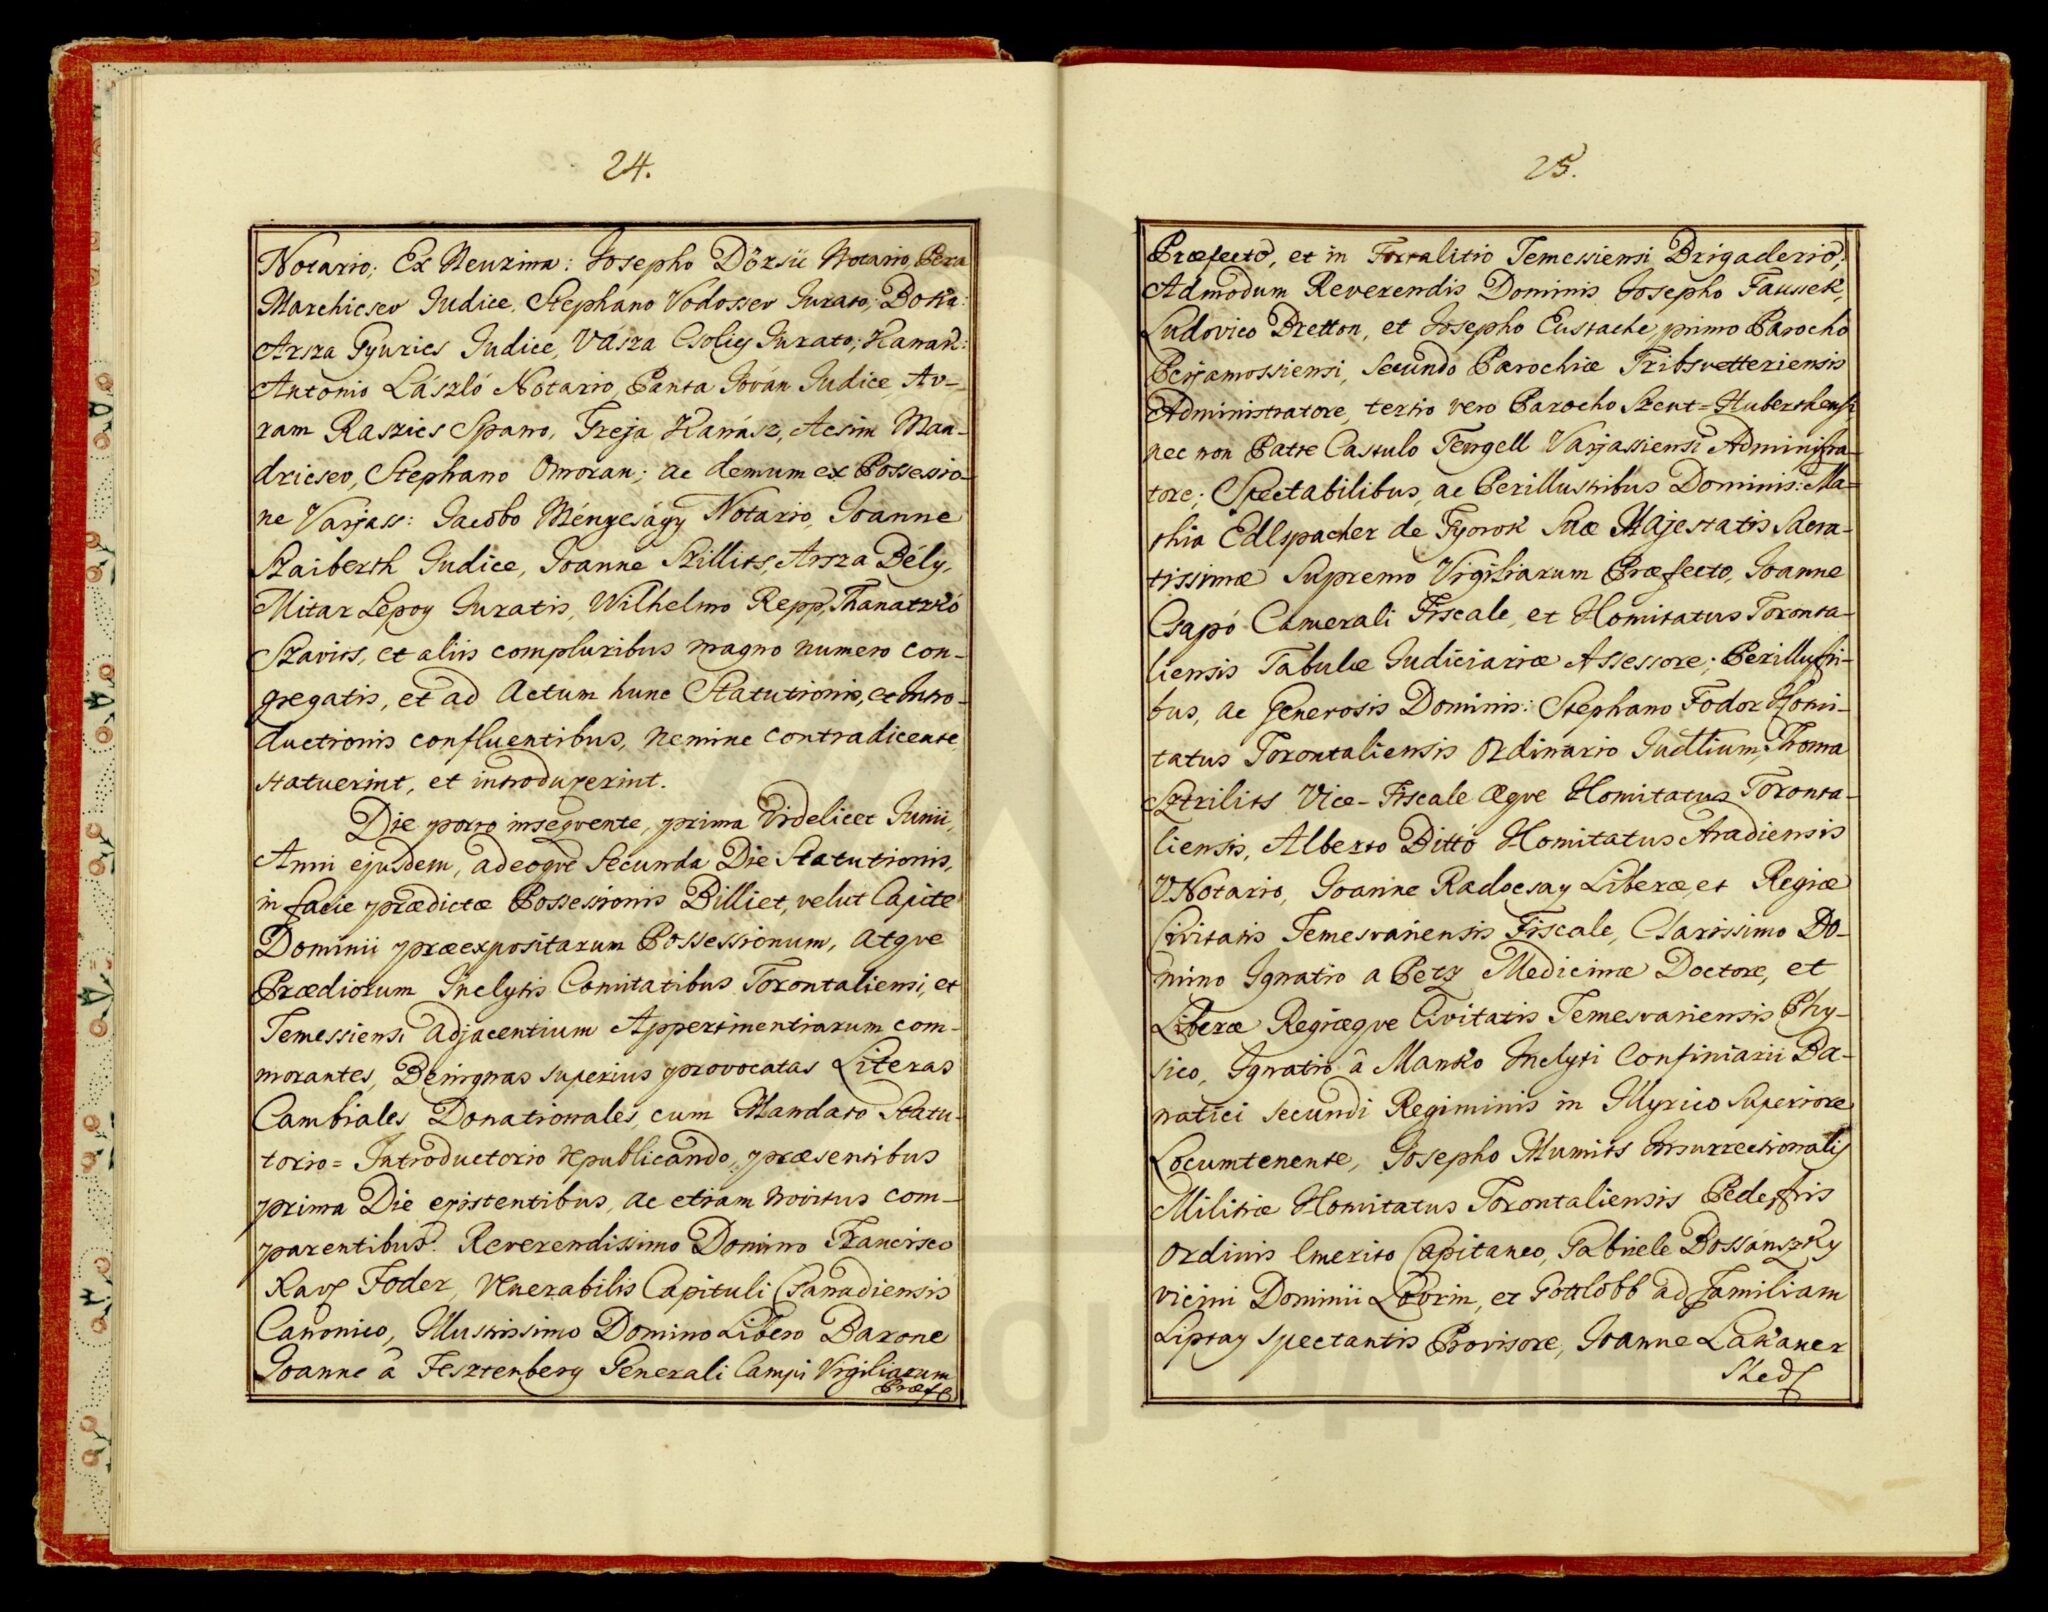 24.
Notario; Ex Neuzina: Josepho Dörsü Notario, Pera
Marchicsev Judice, Stephano Vodossev Jurato; Botka:
Arsza Gyurics Judice, Vásza Csolics Jurato; Kanak:
Antonio László Notario, Panta Jován Judice, Av=
ram Raszics Spano, Freja Kanász, Acsim Man-
dricsev, Stephano Omoran; ac demum ex Possessio-
ne Varjass: Jacobo Ményeságy Notario, Joanne
Szaiberth Judice, Joanne Szillits, Arsza Bély,
Mitar Lepoy Juratis, Wilhelmo Repp, Thanatzkó
Szavits, et aliis compluribus magno numero con-
gregatis, et ad Actum hunc Statutionis, et Intro-
ductionis confluentibus, nemine contradicente
statuerint, et introduxerint.
Die porro inseqvente, prima videlicet Junii,
Anni ejusdem, adeoqve Secunda Die Statutionis,
in facie prædictæ Possessionis Billiet, velut Capite
Dominii præexpositarum Possessionum, atqve
Prædiorum Inclytis Comitatibus Torontaliensi, et
Temessiensi adjacentium Appertinentiarum com-
morantes, Benignas superius provocatas Literas
Cambiales Donationales, cum Mandato Statu-
torio= Introductorio republicando, præsentibus
prima Die existentibus, ac etiam novitus com-
parentibus: Reverendissimo Domino Francisco
Xav Foder, Venerabilis Capituli Csanadiensis
Canonico, Illustrissimo Domino Libero Barone
Joanne â Fesztenberg Generali Campi Vigiliarum
Præf
25.
Præfecto, et in Fortalitio Temessiensi Brigaderio;
Admodum Reverendis Dominis Josepho Faussek,
Ludovico Bretton, et Josepho Eustache, primo Parocho
Perjamossiensi, Secundo Parochiæ Tribsvetteriensis
Administratore, tertio vero Parocho Szent=Huberthensi
nec non Patre Castulo Fengell Varjassiensi Administra-
tore; Spectabilibus, ac Perillustribus Dominis: Ma-
thia Edlspacher de Gyorok Suæ Majestatis Sacra-
tissimæ Supremo Vigiliarum Præfecto, Joanne
Csapó Camerali Fiscale, et I. Comitatus Toronta-
liensis Tabulæ Judiciariæ Assessore; Perillustri-
bus, ac Generosis Dominis: Stephano Fodor I. Comi-
tatus Torontaliensis Ordinario Judlium; Thoma
Sztrilits Vice-Fiscale æqve I. Comitatus Toronta-
liensis, Alberto Bittó I. Comitatus Aradiensis
V.Notario, Joanne Radocsay Liberæ, et Regiæ
Civitatis Temesvariensis Fiscale, Clarissimo Do-
mino Ignatio a Petz Medicinæ Doctore, et
Liberæ Regiæqve Civitatis Temesvariensis Phy-
sico, Ignatio â Manko Inclyti Confiniarii Ba-
natici secundi Regiminis in Illyrico Superiore
Locumtenente, Josepho Mumits Insurrectionalis
Militiæ I. Comitatus Torontaliensis Pedestris
Ordinis Emerito Capitaneo, Gabriele Bossánszky
vicini Dominii Lovrin, et Gottlobb ad Familiam
Liptay spectantis Provisore, Joanne Lakaner